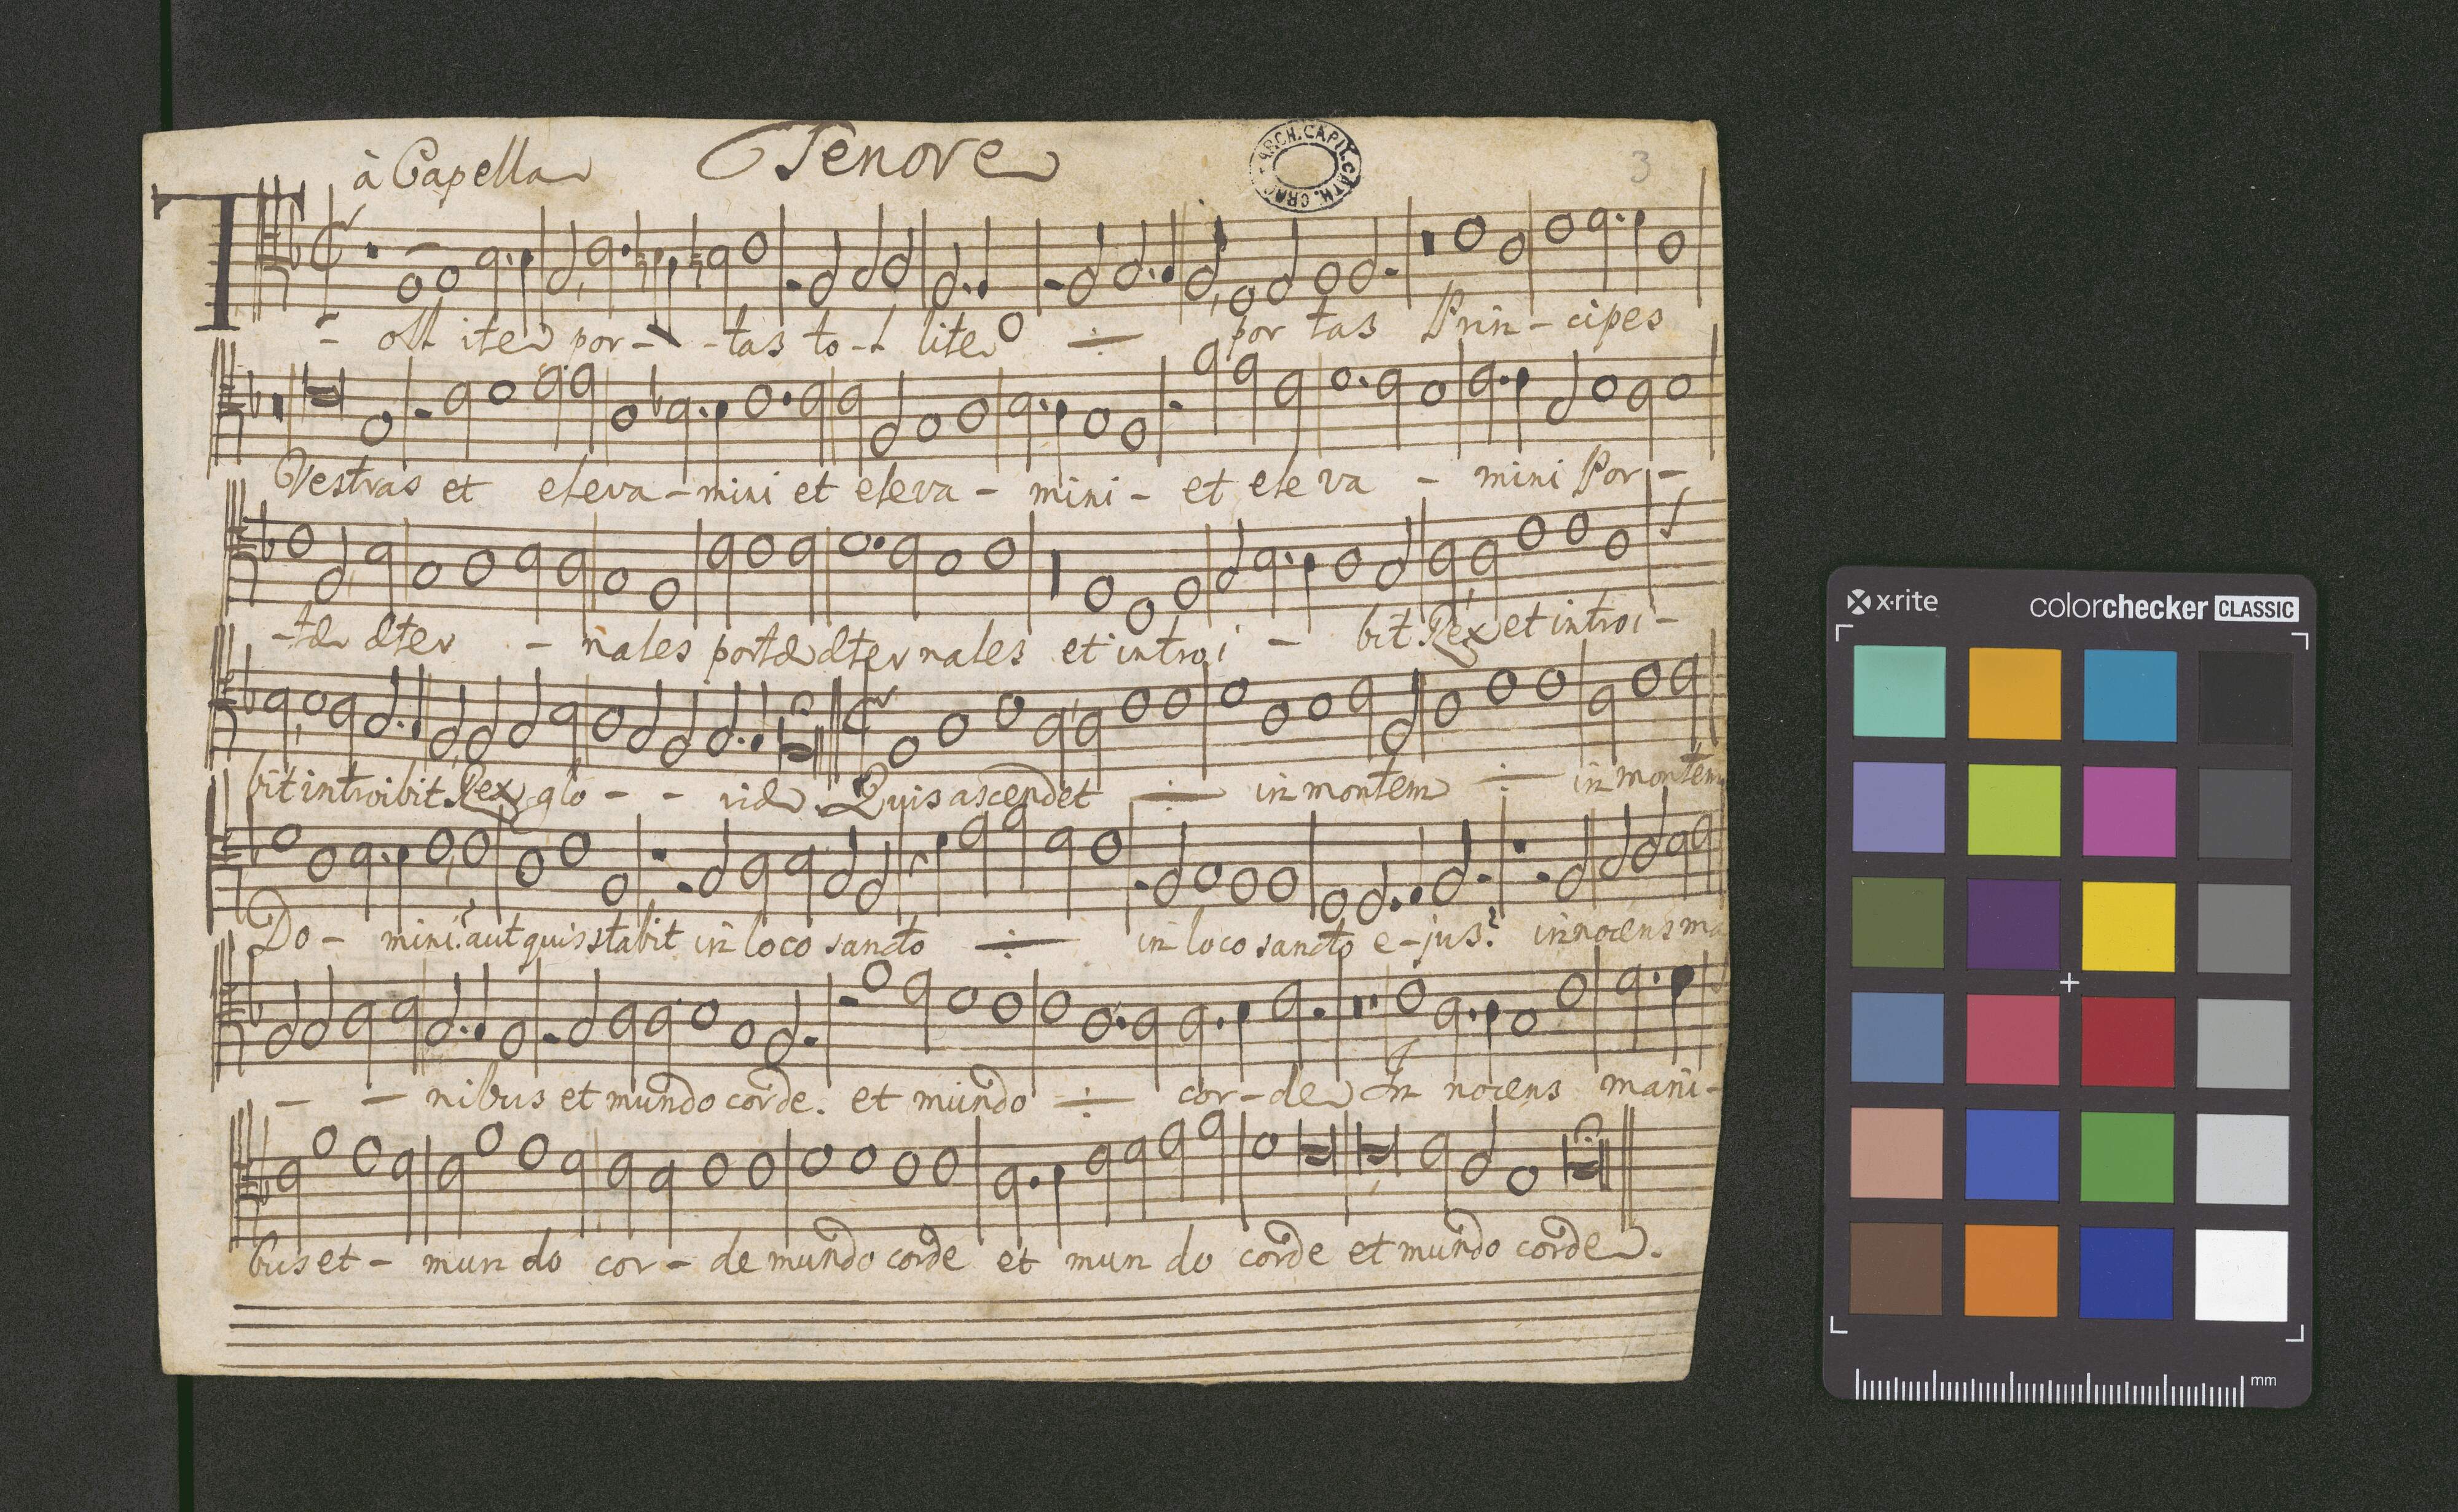 à Capella Tenore
ARCH. CAPIT. CATH. CRAC. 3
Toll ite por - - tas to - l lite ÷ por tas Prin - cipes
Vestras et eleva - mini et eleva - mini - et ele va - mini Por -
- tæ æter - nales portæ æter nales et introi - bit Rex et introi -
bit introibit Rex glo - - riæ. Quis ascendet ÷ in montem ÷ in montem
Do - mini? aut quis stabit in loco sancto ÷ in loco sancto e - jus? innocens ma
- - nibus et mundo corde. et mundo ÷ cor - de In nocens mani -
bus et - mun do cor - de mundo corde et mun do corde et mundo corde.
x·rite colorchecker CLASSIC
mm